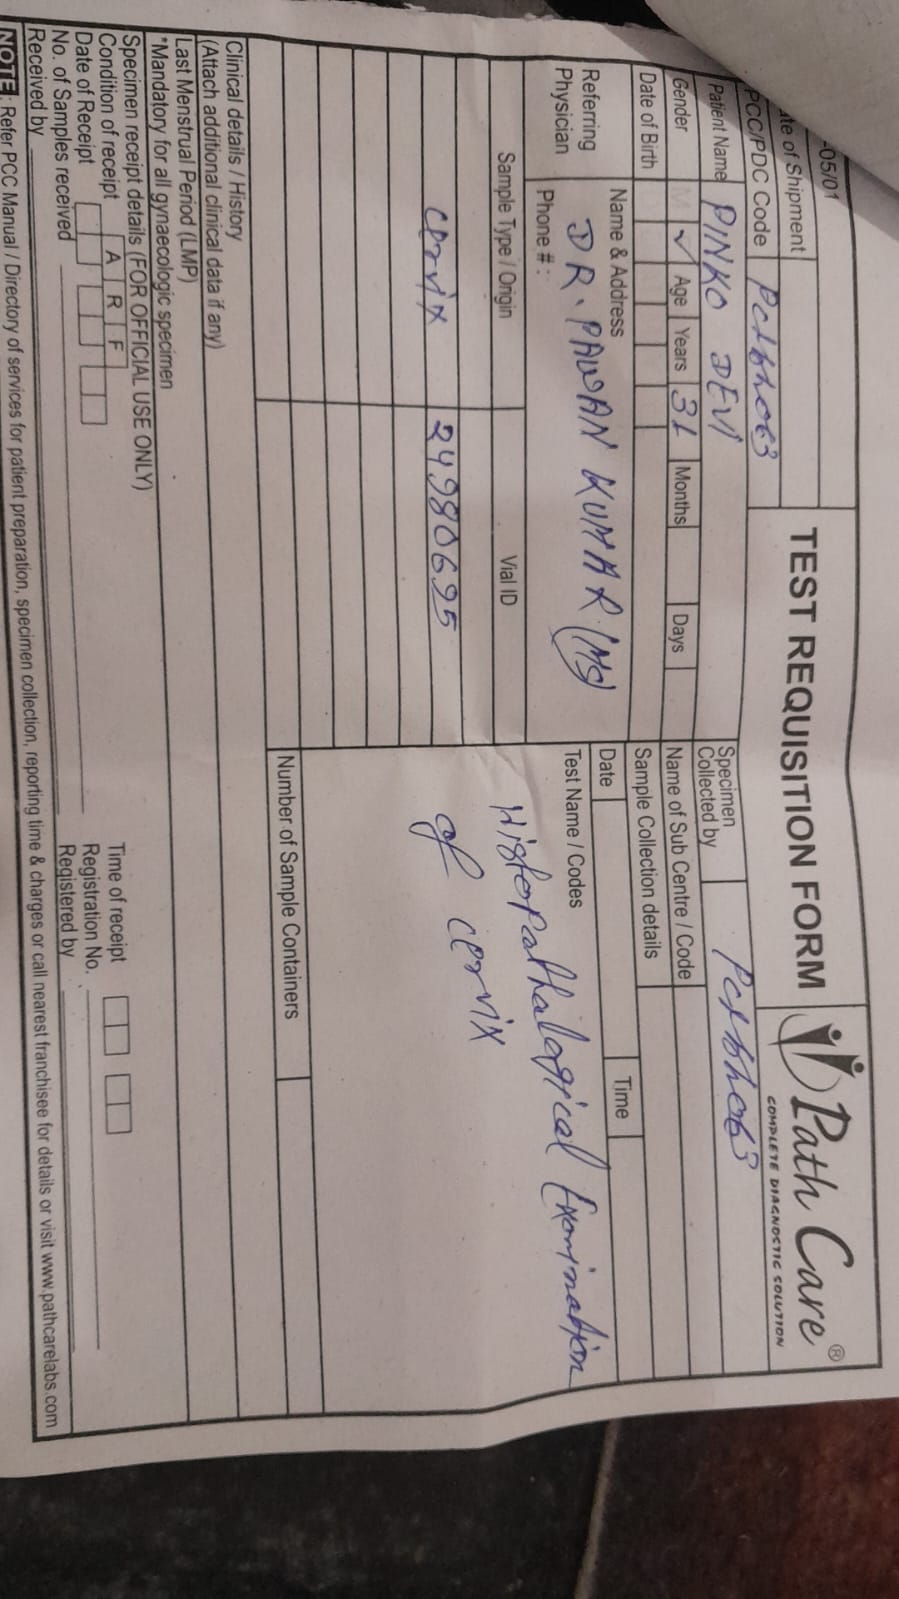 -05/01
te of Shipment
PCC/PDC Code
TEST REQUISITION FORM
Path Care®
COMPLETE DIAGNOSTIC SOLUTION
Patient Name PINKO DEVI
Specimen Collected by
Gender M ✓ Age Years 31 Months Days
Name of Sub Centre / Code
Date of Birth
Sample Collection details
Date Time
Referring Physician
Name & Address
DR. PAWAN KUMAR (MS)
Phone # :
Test Name / Codes
Histopathalogical Examination
of cervix
Sample Type / Origin Vial ID
cervix 24980695
Number of Sample Containers
Clinical details / History
(Attach additional clinical data if any)
Last Menstrual Period (LMP)
*Mandatory for all gynaecologic specimen
Specimen receipt details (FOR OFFICIAL USE ONLY)
Condition of receipt A R F
Date of Receipt
Time of receipt
No. of Samples received
Registration No.
Received by
Registered by
NOTE : Refer PCC Manual / Directory of services for patient preparation, specimen collection, reporting time & charges or call nearest franchisee for details or visit www.pathcarelabs.com